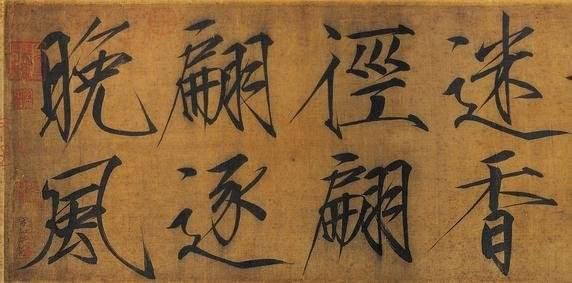 迷香
徑翩
翩逐
晚風